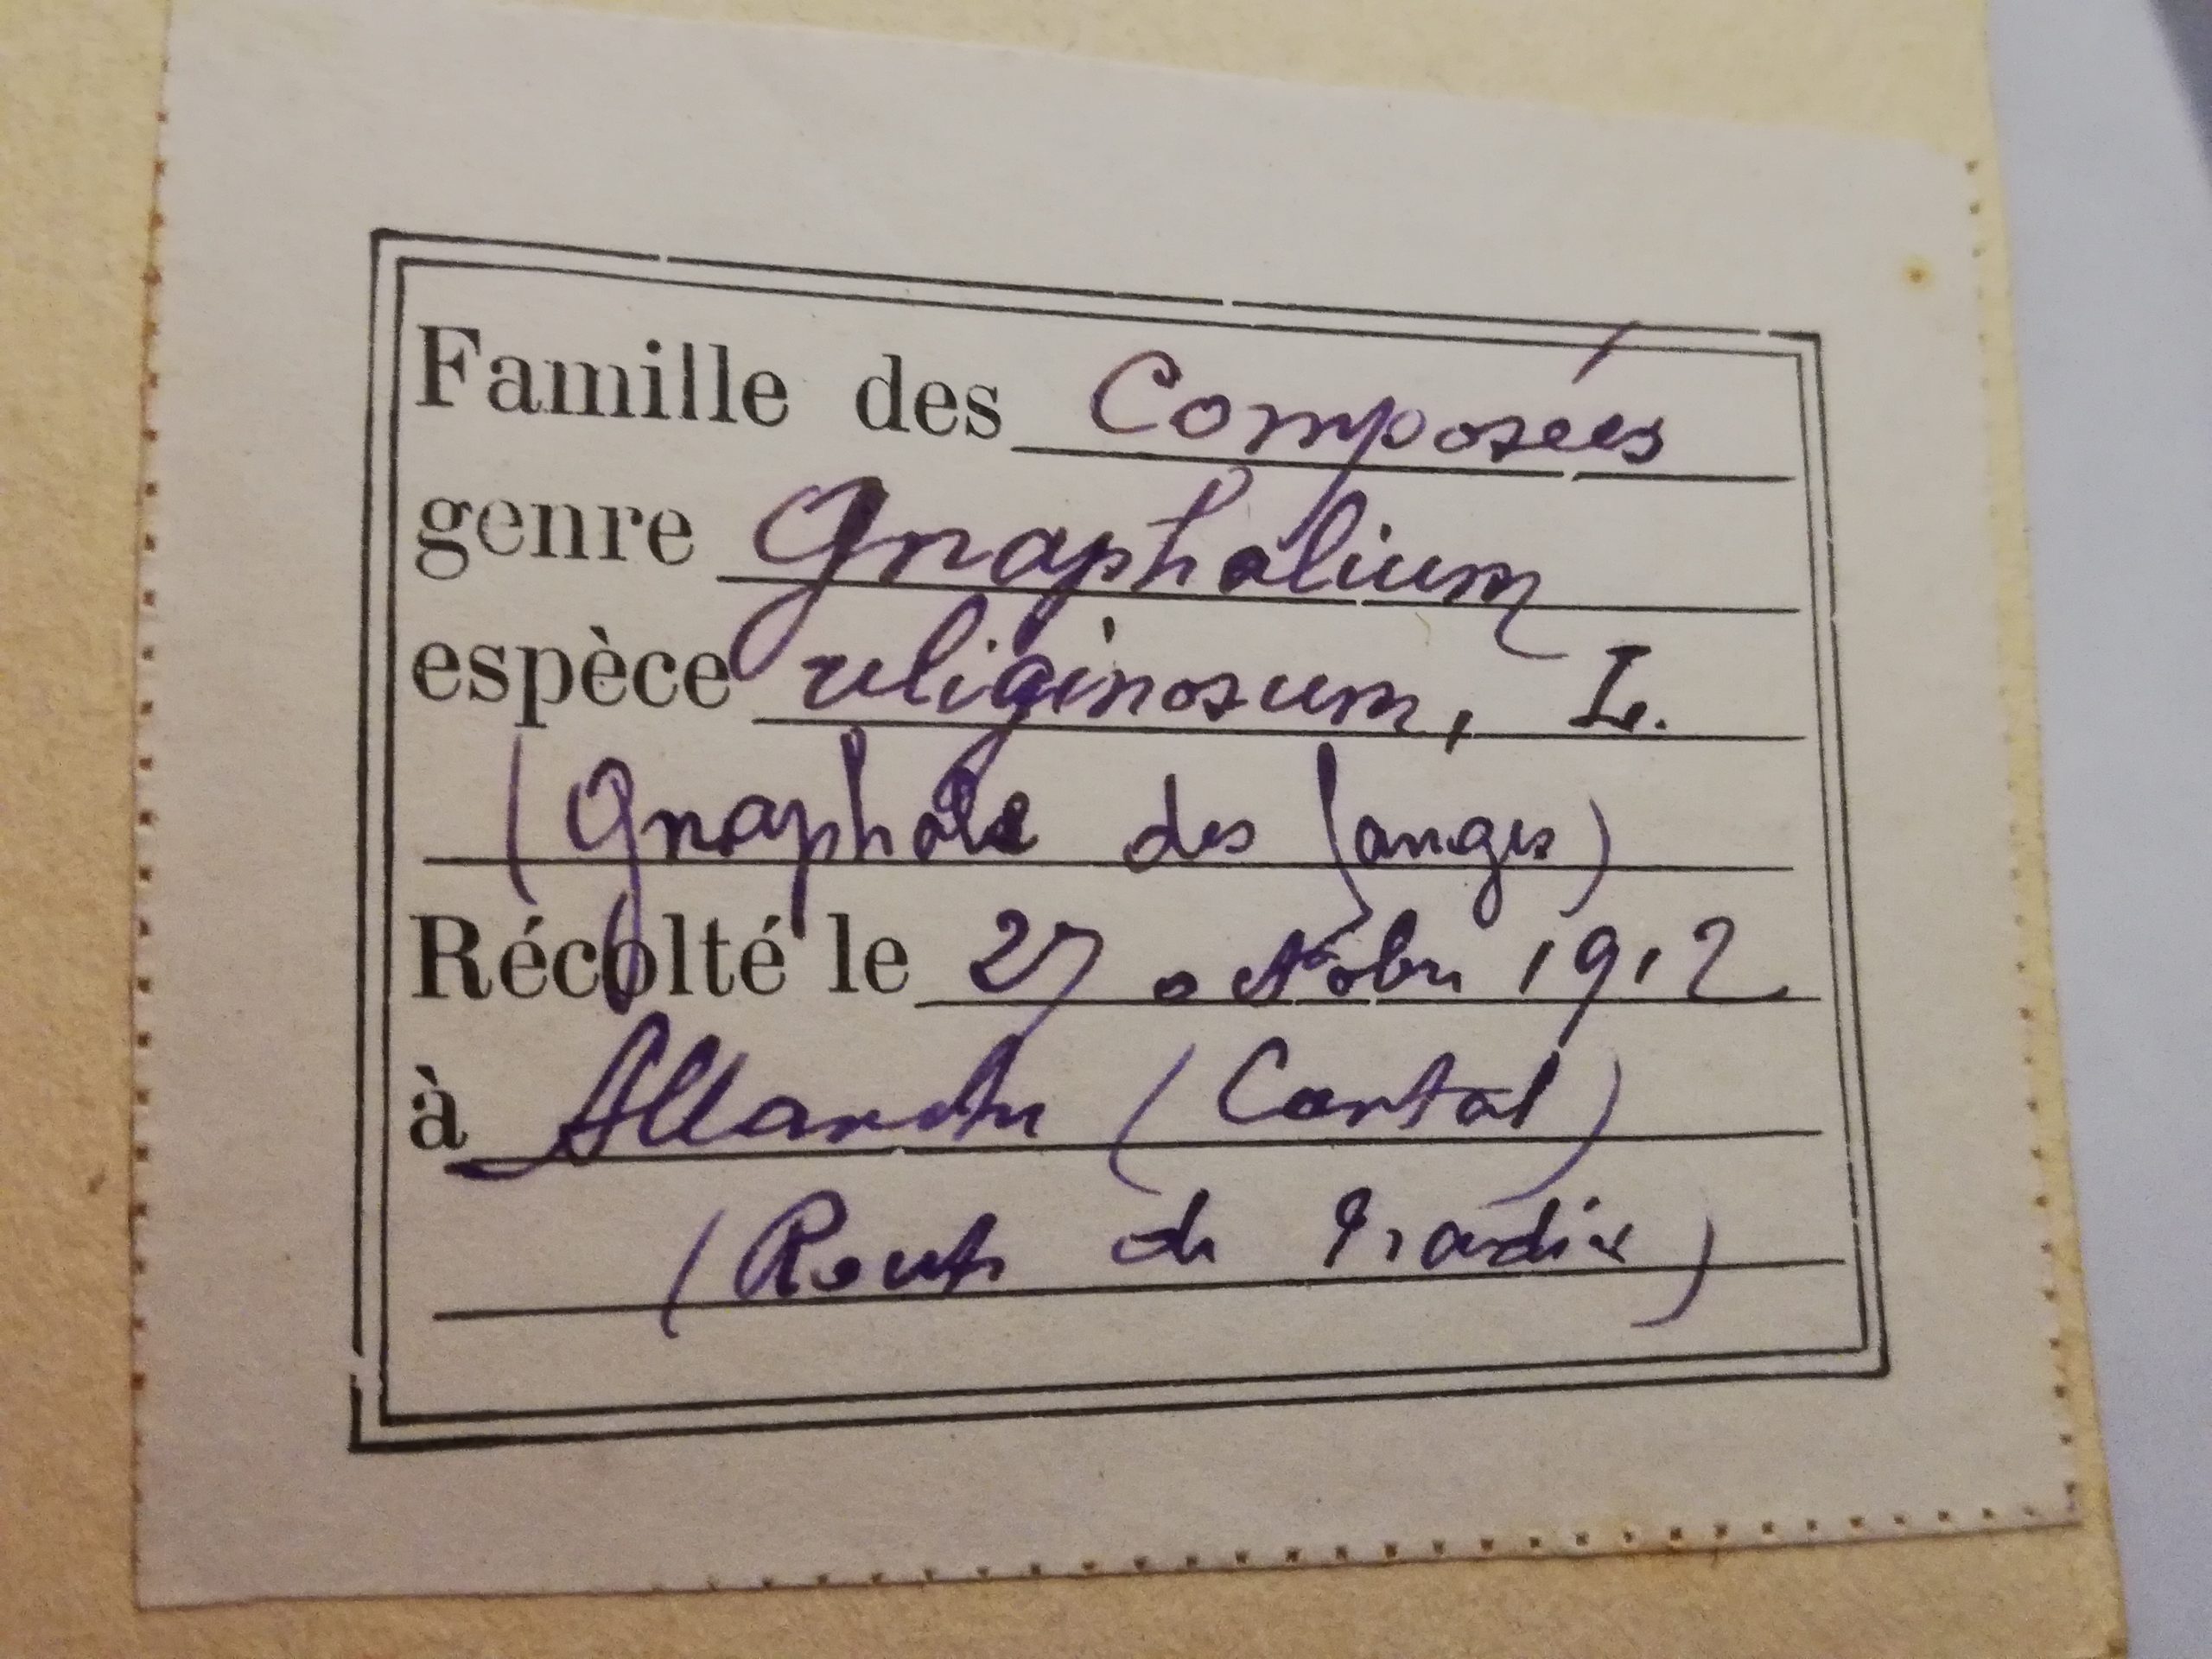 Famille des Composées
genre Gnaphalium
espèce uliginosum, L.
(Gnaphale des fanges)
Récolté le 27 octobre 1912
à Allanche (Cantal)
(Route de Pradier)